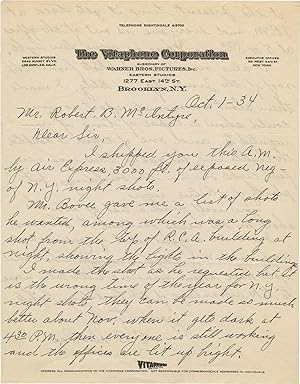 TELEPHONE NIGHTINGALE 4-8700
WESTERN STUDIOS
5842 SUNSET BLVD
LOS ANGELES, CAL.
The Vitaphone Corporation
SUBSIDIARY OF
WARNER BROS. PICTURES, Inc.
EASTERN STUDIOS
1277 EAST 14TH ST.
BROOKLYN, N.Y.
EXECUTIVE OFFICES
321 WEST 44TH ST.
NEW YORK
Oct. 1-34
Mr. Robert B. McIntyre,
Dear Sir,
I shipped you this A.M.
by Air Express, 3000 ft. of exposed neg-
of N.Y. night shots.
Mr. Bovee gave me a list of shots
he wanted, among which was a long
shot from the top of R.C.A. building at
night, showing the lights in the building
I made the shot as he requested but it
is the wrong time of the year for N.Y.
night shots, they can be made so much
better about Nov. when it gets dark at
430 P.M. then everyone is still working
and the offices are lit up bright.
VITAPHONE
ADDRESS ALL COMMUNICATIONS TO THE VITAPHONE CORPORATION. NOT RESPONSIBLE FOR CORRESPONDENCE ADDRESSED TO INDIVIDUALS.